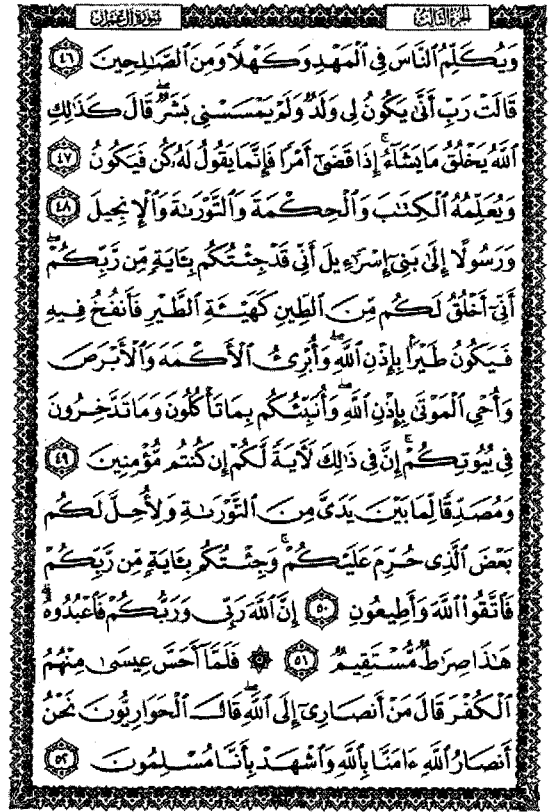 الجزء الثالث
سورة آل عمران
وَيُكَلِّمُ النَّاسَ فِي الْمَهْدِ وَكَهْلًا وَمِنَ الصَّٰلِحِينَ ٤٦
قَالَتْ رَبِّ أَنَّىٰ يَكُونُ لِي وَلَدٌ وَلَمْ يَمْسَسْنِي بَشَرٌ ۖ قَالَ كَذَٰلِكِ
اللَّهُ يَخْلُقُ مَا يَشَآءُ ۚ إِذَا قَضَىٰٓ أَمْرًا فَإِنَّمَا يَقُولُ لَهُۥ كُن فَيَكُونُ ٤٧
وَيُعَلِّمُهُ الْكِتَٰبَ وَالْحِكْمَةَ وَالتَّوْرَىٰةَ وَالْإِنجِيلَ ٤٨
وَرَسُولًا إِلَىٰ بَنِيٓ إِسْرَٰٓءِيلَ أَنِّي قَدْ جِئْتُكُم بِـَٔايَةٍ مِّن رَّبِّكُمْ ۖ
أَنِّيٓ أَخْلُقُ لَكُم مِّنَ الطِّينِ كَهَيْـَٔةِ الطَّيْرِ فَأَنفُخُ فِيهِ
فَيَكُونُ طَيْرًۢا بِإِذْنِ اللَّهِ ۖ وَأُبْرِئُ الْأَكْمَهَ وَالْأَبْرَصَ
وَأُحْيِ الْمَوْتَىٰ بِإِذْنِ اللَّهِ ۖ وَأُنَبِّئُكُم بِمَا تَأْكُلُونَ وَمَا تَدَّخِرُونَ
فِي بُيُوتِكُمْ ۚ إِنَّ فِي ذَٰلِكَ لَـَٔايَةً لَّكُمْ إِن كُنتُم مُّؤْمِنِينَ ٤٩
وَمُصَدِّقًا لِّمَا بَيْنَ يَدَيَّ مِنَ التَّوْرَىٰةِ وَلِأُحِلَّ لَكُم
بَعْضَ الَّذِي حُرِّمَ عَلَيْكُمْ ۚ وَجِئْتُكُم بِـَٔايَةٍ مِّن رَّبِّكُمْ
فَاتَّقُوا اللَّهَ وَأَطِيعُونِ ٥٠ إِنَّ اللَّهَ رَبِّي وَرَبُّكُمْ فَاعْبُدُوهُ ۗ
هَٰذَا صِرَٰطٌ مُّسْتَقِيمٌ ٥١ ۞ فَلَمَّآ أَحَسَّ عِيسَىٰ مِنْهُمُ
الْكُفْرَ قَالَ مَنْ أَنصَارِيٓ إِلَى اللَّهِ ۖ قَالَ الْحَوَارِيُّونَ نَحْنُ
أَنصَارُ اللَّهِ ءَامَنَّا بِاللَّهِ وَاشْهَدْ بِأَنَّا مُسْلِمُونَ ٥٢